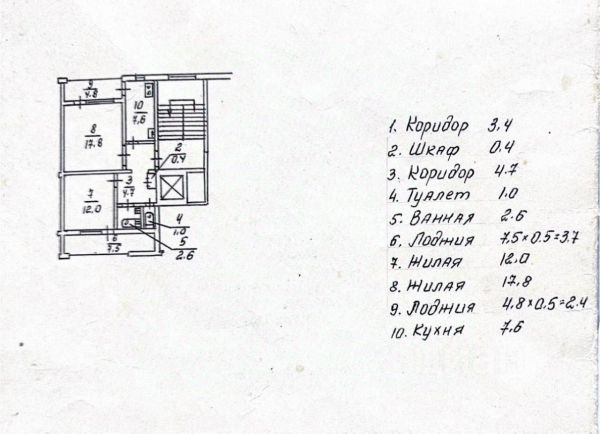 9
4.8
10
7.6
8
17.8
2
0.4
3
4.7
7
12.0
4
1.0
5
2.6
6
7.5
1. Коридор 3,4
2. Шкаф 0.4
3. Коридор 4.7
4. Туалет 1.0
5. Ванная 2.6
6. Лоджия 7.5×0.5=3.7
7. Жилая 12.0
8. Жилая 17.8
9. Лоджия 4.8×0.5=2.4
10. Кухня 7.6